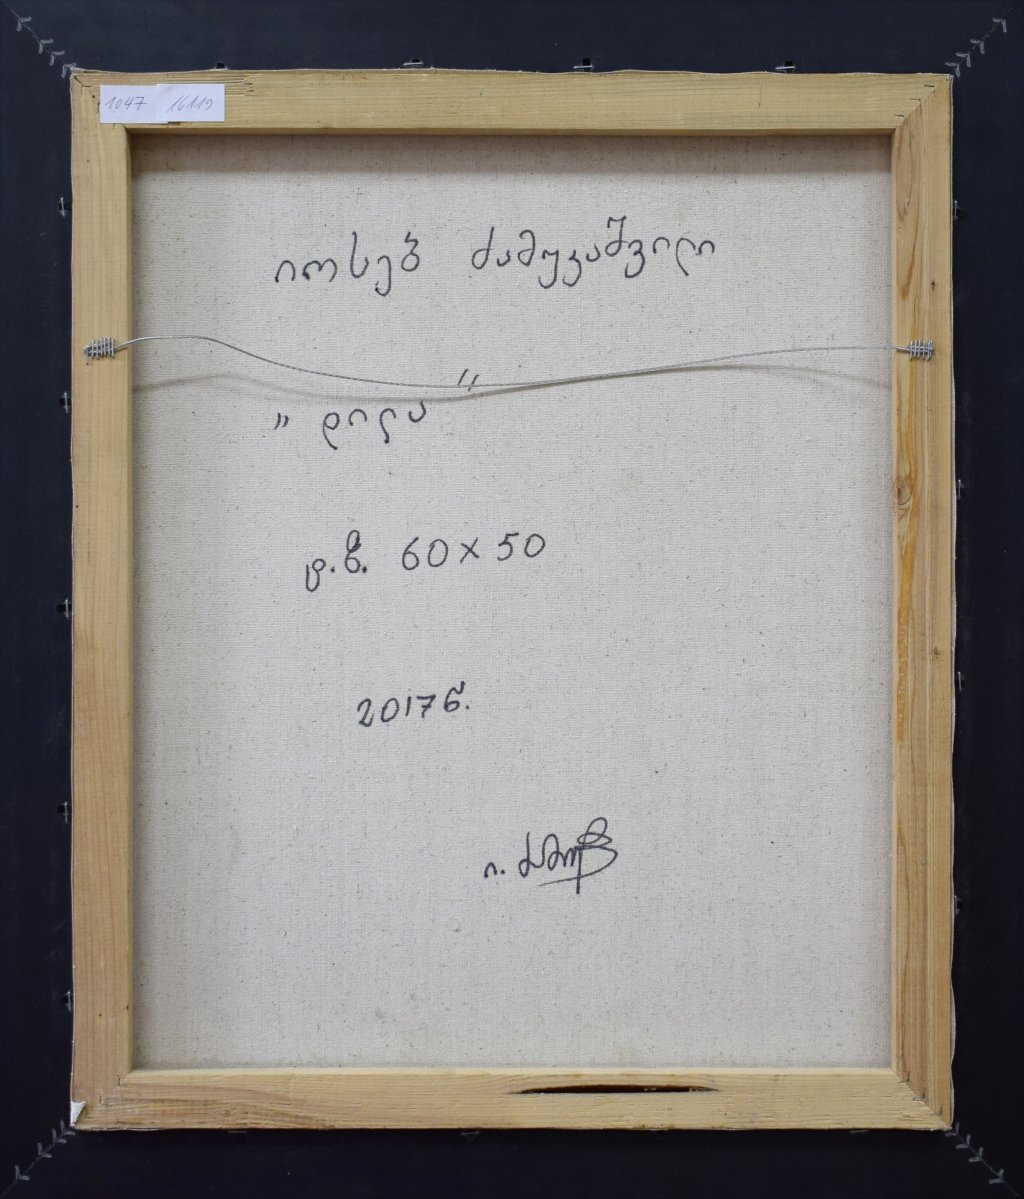 1047 16119
იოსებ ძამუკაშვილი
„ დილა “
ტ.ზ. 60x50
2017წ.
ი.